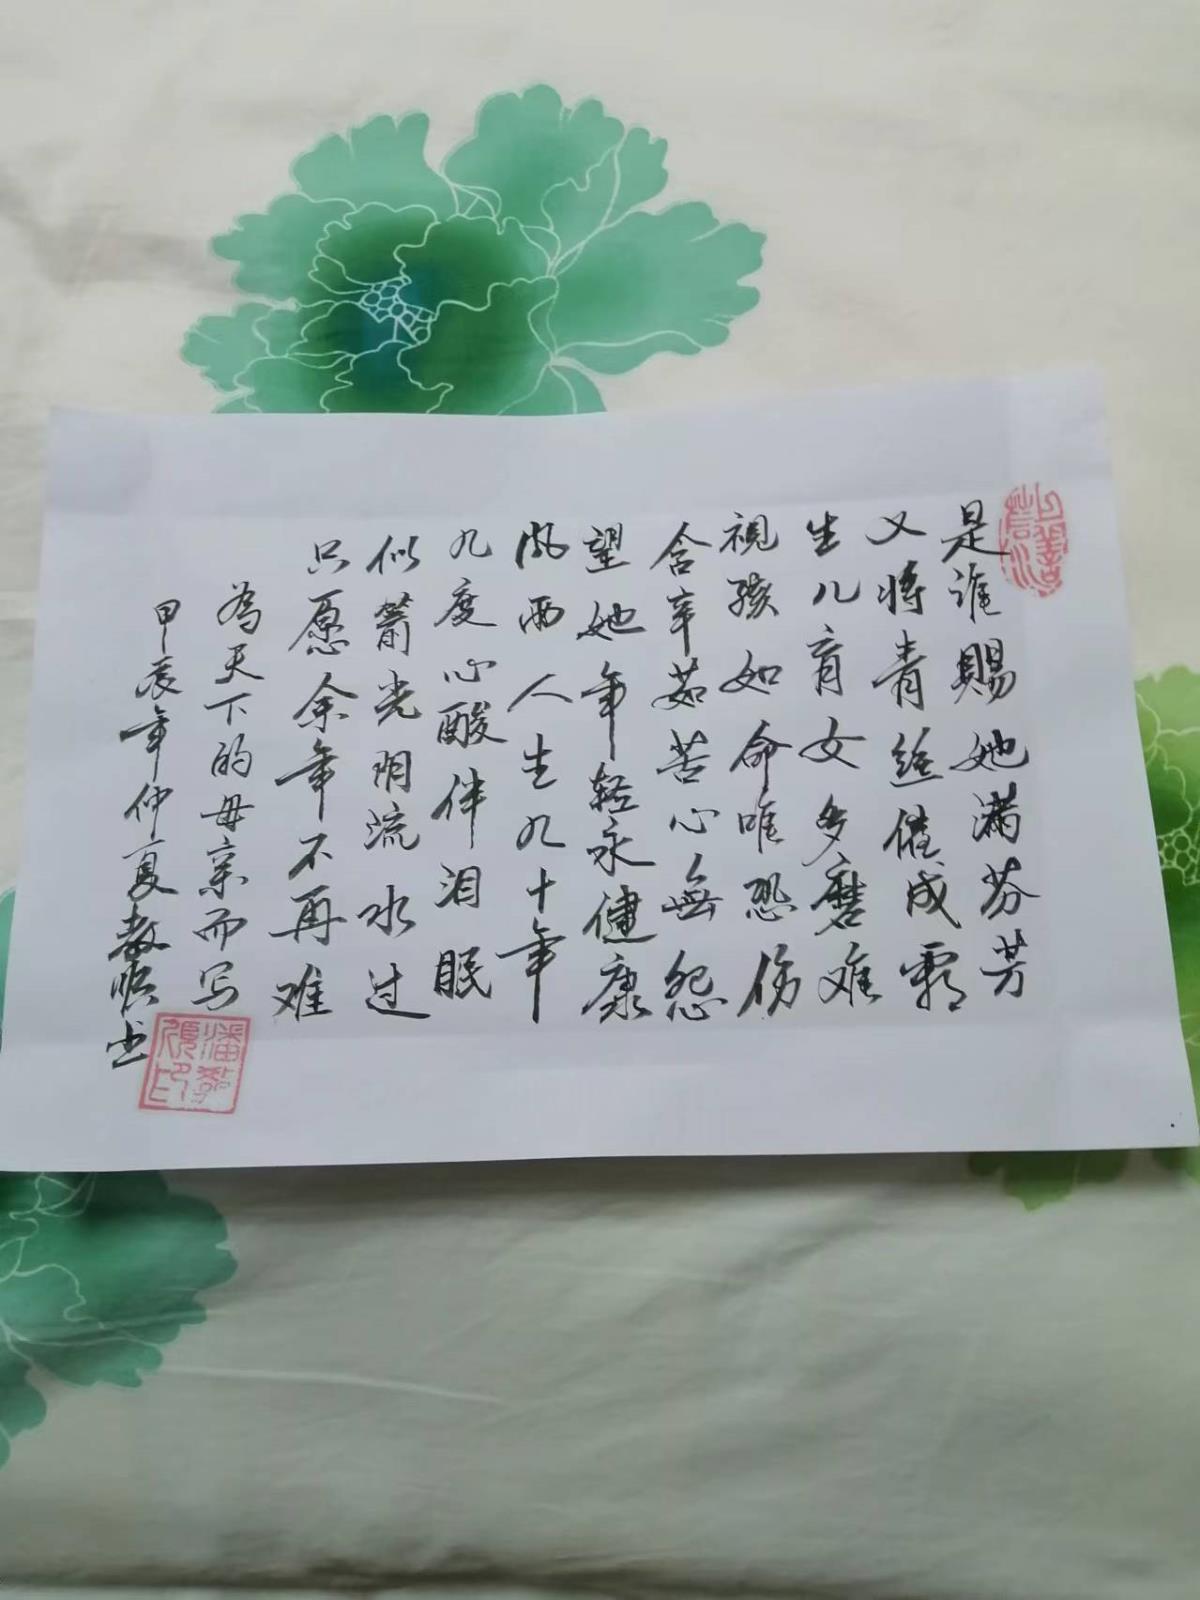 是谁賜她满芬芳
又将青丝催成霜
生儿育女多磨难
視孩如命唯恐伤
含辛茹苦心無怨
望她年轻永健康
风雨人生九十年
九度心酸伴泪眠
似箭光阴流水过
只愿余年不再难
為天下的母亲而写
甲辰年仲夏敖顺书